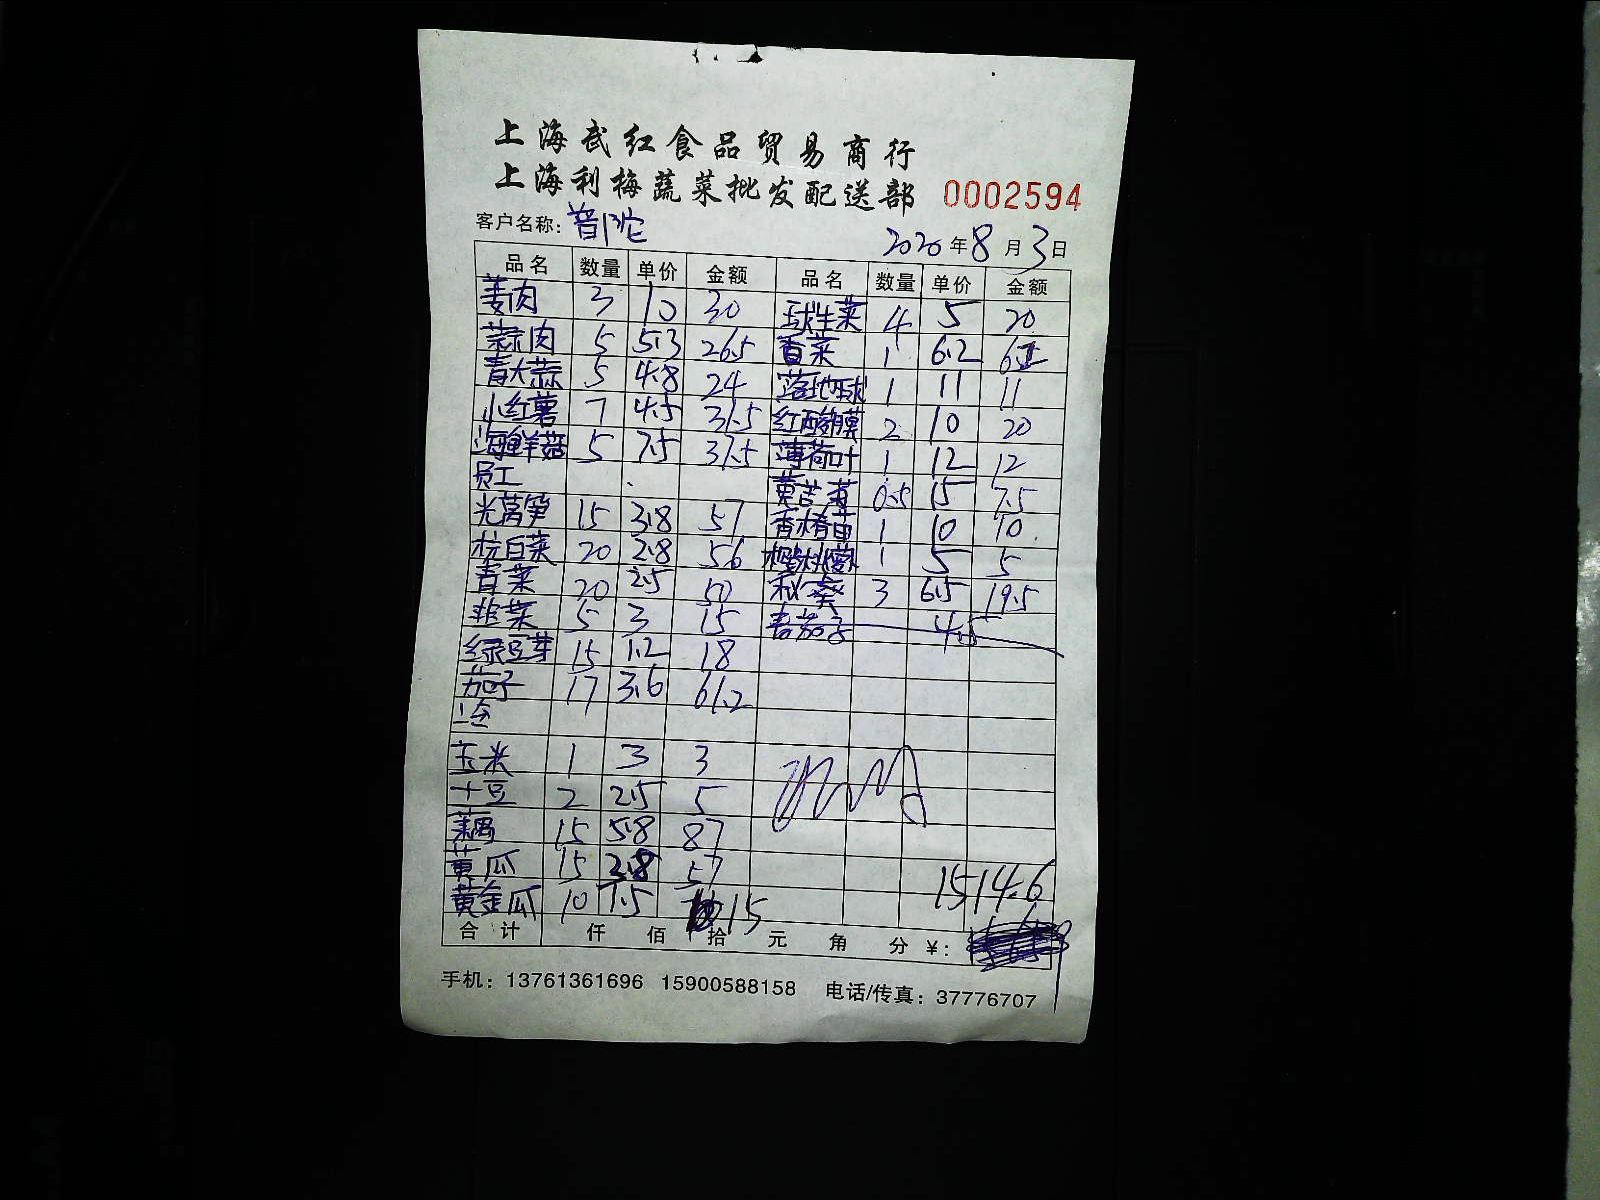 上海武红食品贸易商行
上海利梅蔬菜批发配送部 0002594
客户名称: 普陀 2020年8月3日
品名 数量 单价 金额 品名 数量 单价 金额
姜肉 3 10 30 球生菜 4 5 20
蒜肉 5 5.3 26.5 香菜 1 6.2
青大蒜 5 4.8 24 落地球 1 11 11
小红薯 7 4.5 31.5 红酸膜 2 10 20
海鲜菇 5 7.5 37.5 薄荷叶 1 12 12
员工 0.5 15 7.5
光莴笋 15 3.8 57 1 10 10
杭白菜 20 2.8 56 1 5 5
青菜 20 2.5 50 秋葵 3 6.5 19.5
韭菜 5 3 15 茄子 4.5
绿豆芽 15 1.2 18
茄子 17 3.6 61.2
玉米 1 3 3
土豆 2 2.5 5
藕 15 5.8 87
黄瓜 15 3.8 57 1514.6
黄金瓜 10 1.5 15
合计 仟 佰 拾 元 角 分 ¥:
手机: 13761361696 15900588158 电话/传真: 37776707